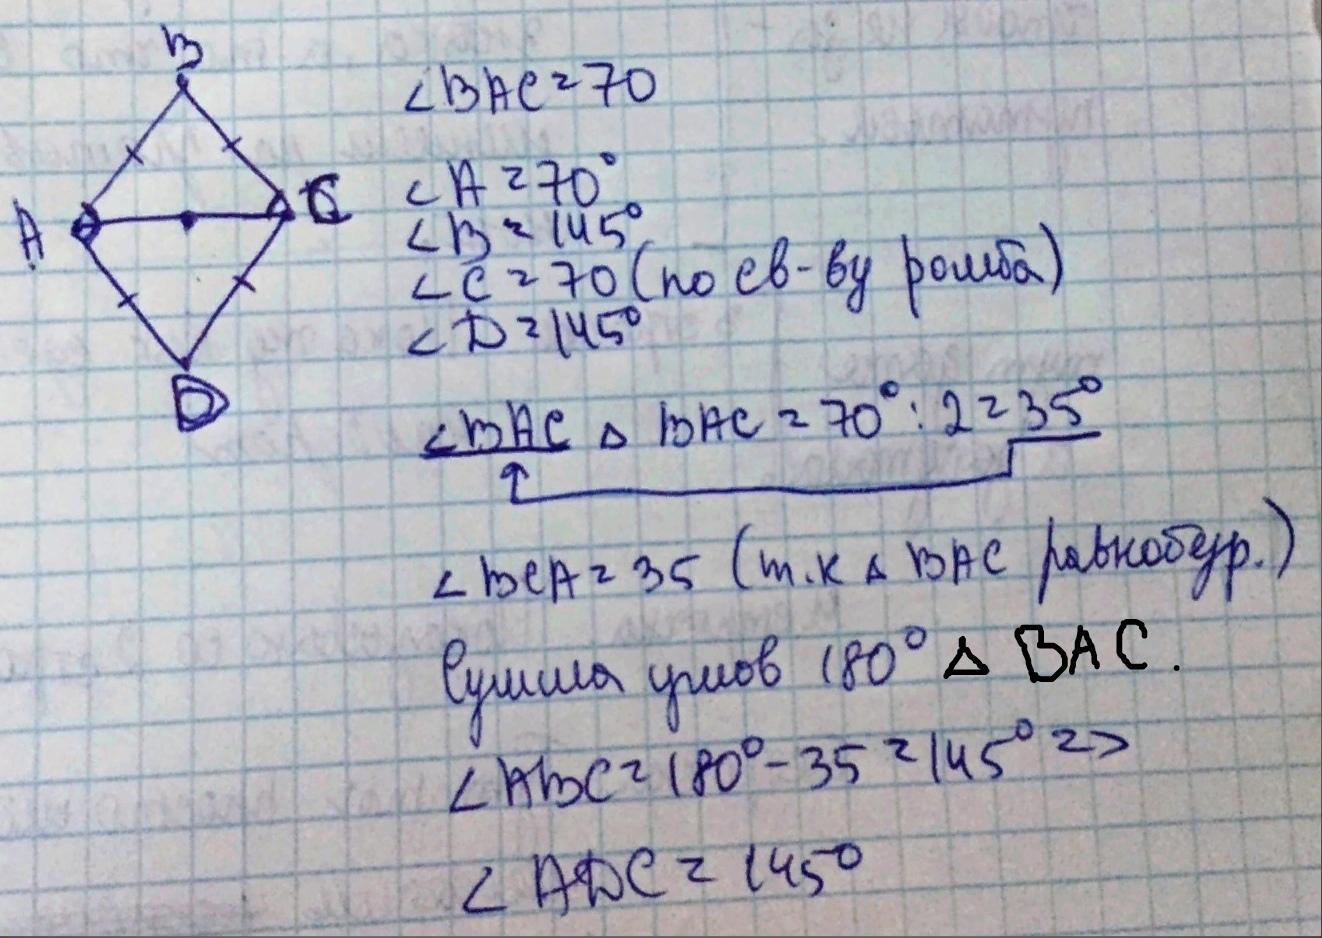 B
A
C
D
∠BAC = 70
∠A = 70°
∠B = 145°
∠C = 70 (по св-ву ромба)
∠D = 145°
∠BAC △ BAC = 70° : 2 = 35°
∠BCA = 35 (т.к △ BAC равнобедр.)
Сумма углов 180° △ BAC.
∠ABC = 180° - 35 = 145° =>
∠ADC = 145°